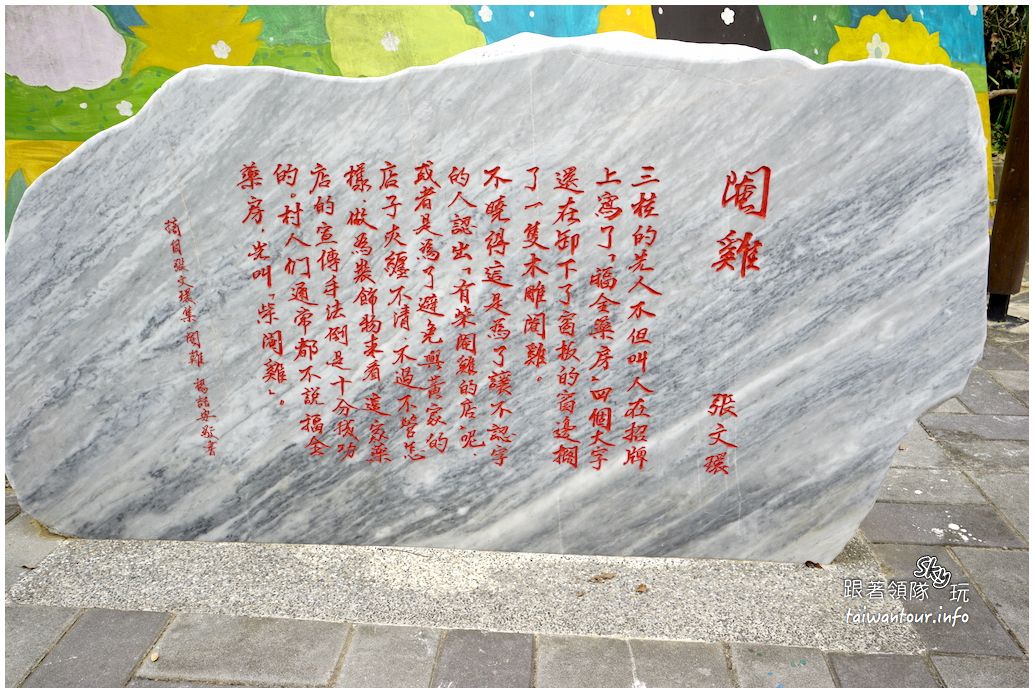 閹雞
張文環
三桂的先人不但叫人在招牌
上寫了「福全藥房」四個大字
還在卸下了窗板的窗邊擱
了一隻木雕閹雞。
不曉得這是為了讓不認字
的人認出「有柴閹雞的店」呢.
或者是為了避免與黃家的
店子夾纏不清.不過不管怎
樣.做為裝飾物來看這家藥
店的宣傳手法倒是十分成功
的。村人们通常都不說福全
藥房.光叫「柴閹雞」。
摘自張文環集 閹雞 敬書
跟著領隊sky玩
taiwantour.info